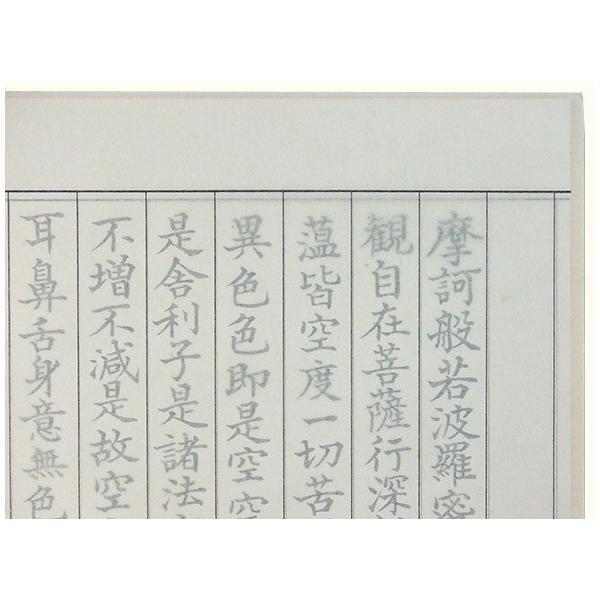 摩訶般若波羅蜜
観自在菩薩行深
薀皆空度一切苦
異色色即是空空
是舎利子是諸法
不増不減是故空
耳鼻舌身意無色